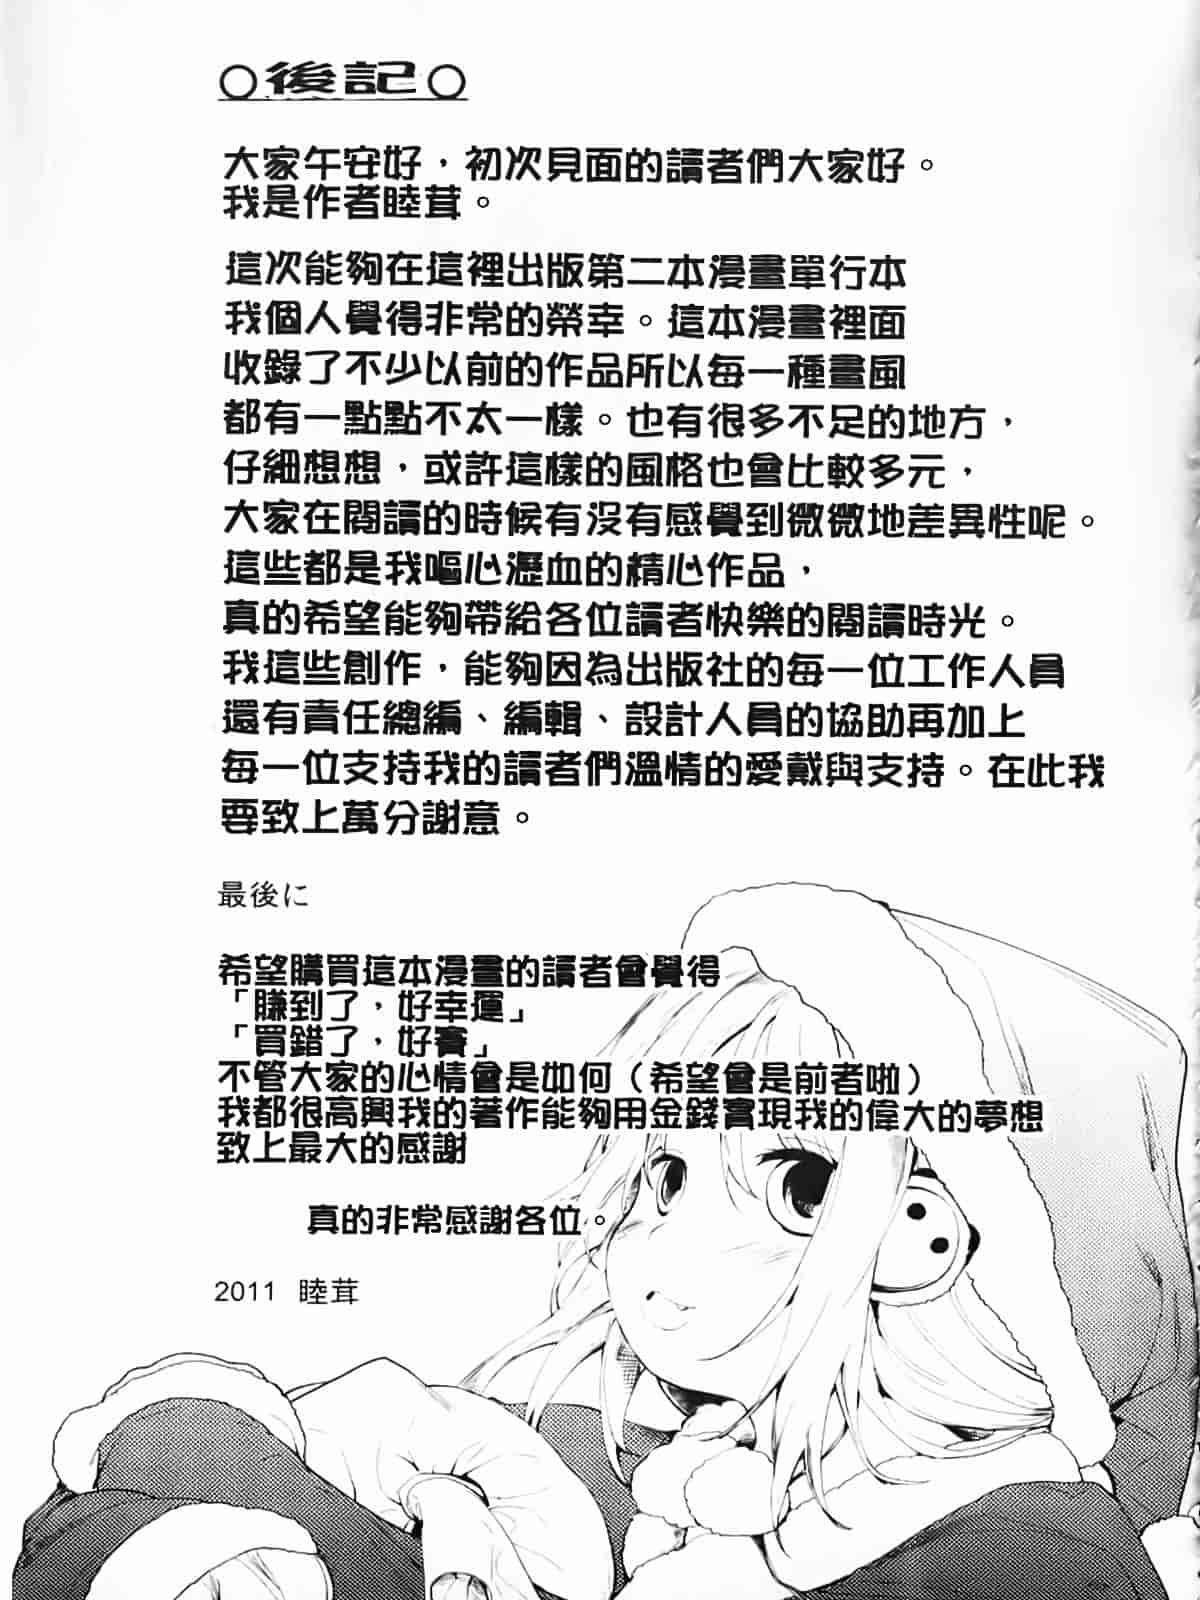 ○後記○
大家午安好，初次見面的讀者們大家好。
我是作者睦茸。
這次能夠在這裡出版第二本漫畫單行本
我個人覺得非常的榮幸。這本漫畫裡面
收錄了不少以前的作品所以每一種畫風
都有一點點不太一樣。也有很多不足的地方，
仔細想想，或許這樣的風格也會比較多元，
大家在閱讀的時候有沒有感覺到微微地差異性呢。
這些都是我嘔心瀝血的精心作品，
真的希望能夠帶給各位讀者快樂的閱讀時光。
我這些創作，能夠因為出版社的每一位工作人員
還有責任總編、編輯、設計人員的協助再加上
每一位支持我的讀者們溫情的愛戴與支持。在此我
要致上萬分謝意。
最後に
希望購買這本漫畫的讀者會覺得
「賺到了，好幸運」
「買錯了，好賽」
不管大家的心情會是如何（希望會是前者啦）
我都很高興我的著作能夠用金錢實現我的偉大的夢想
致上最大的感謝
真的非常感謝各位。
2011 睦茸